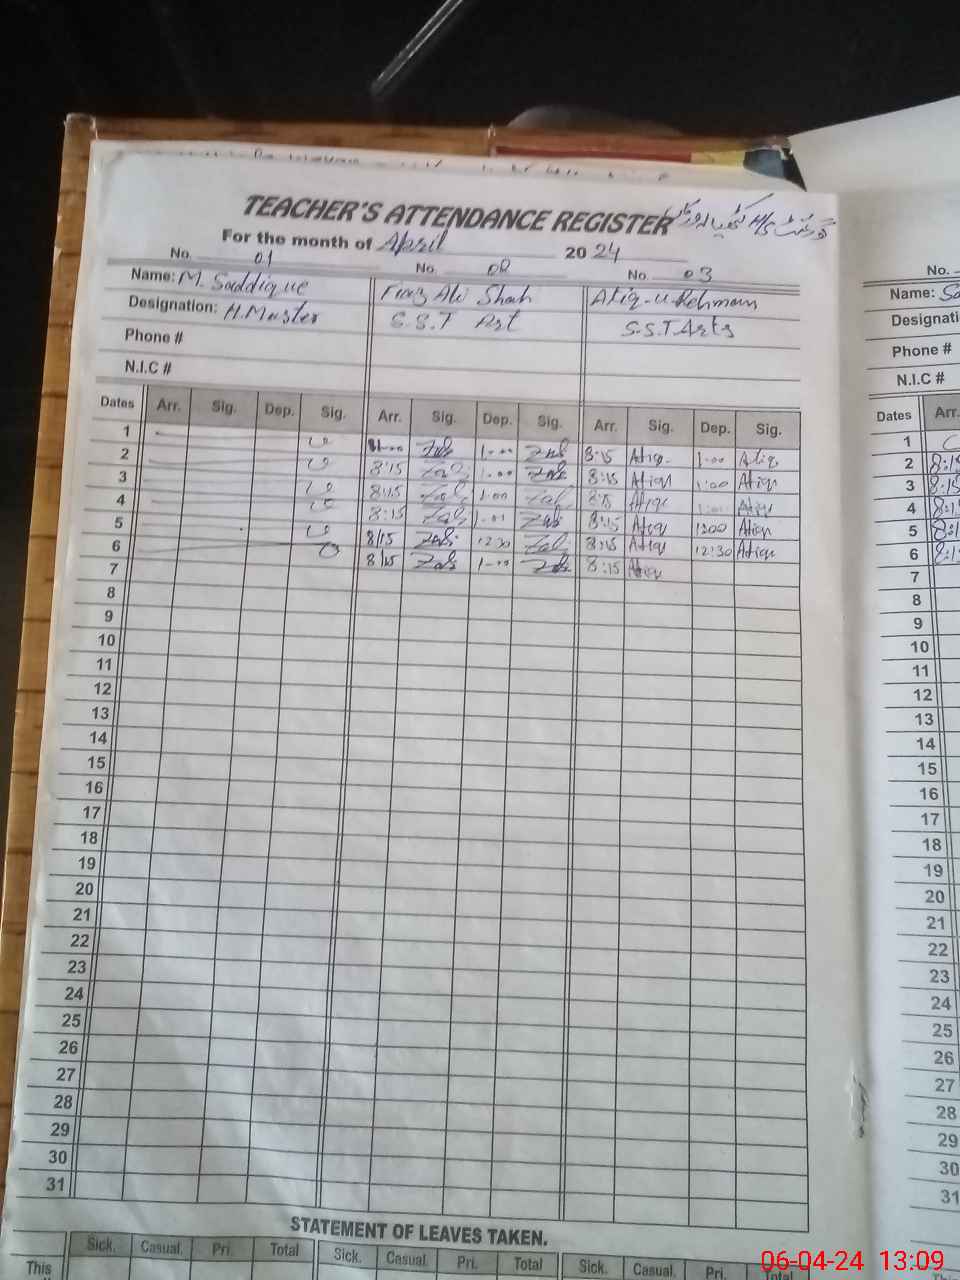 TEACHER'S ATTENDANCE REGISTER
For the month of April 2024
No. 01 No. 02 No. 03
Name: M. Saddique Fiaz Ali Shah Atiq-u-Rehmam
Designation: H.Master S.S.T Art S.S.T Arts
Phone #
N.I.C #
Dates Arr. Sig. Dep. Sig. Arr. Sig. Dep. Sig. Arr. Sig. Dep. Sig.
1 1-00 8:15 Atiq 1-00 Atiq
2 8:15 1-00 8:15 Atiq 1:00 Atiq
3 8:15 1:00 Atiq Atiq
4 8:15 8:15 Atiq 1:00 Atiq
5 8:15 12:30 8:15 Atiq 12:30 Atiq
6 8:15 1-00 8:15 Atiq
7
8
9
10
11
12
13
14
15
16
17
18
19
20
21
22
23
24
25
26
27
28
29
30
31
STATEMENT OF LEAVES TAKEN.
Sick. Casual. Pri. Total Sick. Casual. Pri. Total Sick. Casual. Pri. Total
This
No.
Name: Sa
Designati
Phone #
N.I.C #
Dates Arr.
1
2 8:15
3 8:15
4 8:1
5 8:1
6 8:1
7
8
9
10
11
12
13
14
15
16
17
18
19
20
21
22
23
24
25
26
27
28
29
30
31
06-04-24 13:09